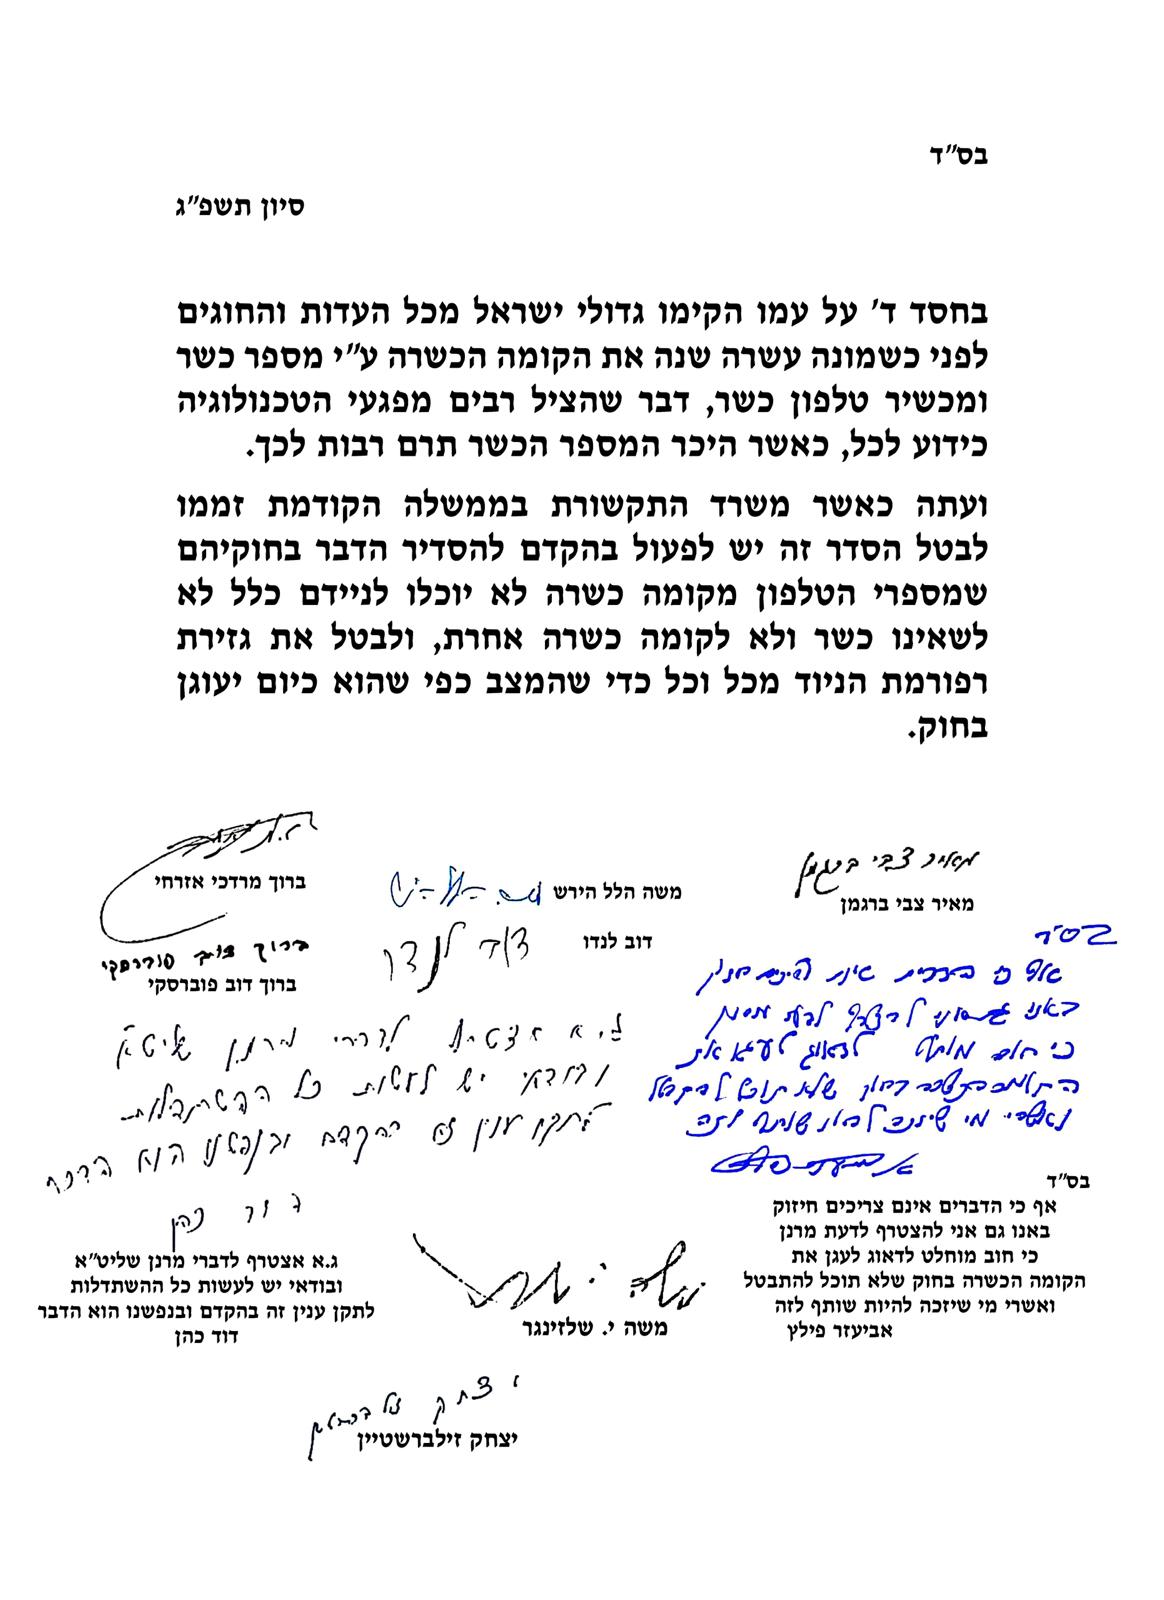 בס"ד
סיון תשפ"ג
בחסד ד' על עמו הקימו גדולי ישראל מכל העדות והחוגים
לפני כשמונה עשרה שנה את הקומה הכשרה ע"י מספר כשר
ומכשיר טלפון כשר, דבר שהציל רבים מפגעי הטכנולוגיה
כידוע לכל, כאשר היכר המספר הכשר תרם רבות לכך.
ועתה כאשר משרד התקשורת בממשלה הקודמת זממו
לבטל הסדר זה יש לפעול בהקדם להסדיר הדבר בחוקיהם
שמספרי הטלפון מקומה כשרה לא יוכלו לניידם כלל לא
לשאינו כשר ולא לקומה כשרה אחרת, ולבטל את גזירת
רפורמת הניוד מכל וכל כדי שהמצב כפי שהוא כיום יעוגן
בחוק.
מאיר צבי ברגמן
מאיר צבי ברגמן
משה הלל הירש
ברוך מרדכי אזרחי
דוב לנדו
דוב לנדו
ברוך דוב פוברסקי
ברוך דוב פוברסקי
בס"ד
אף כי הדברים אינם צריכים חיזוק
באנו גם אני להצטרף לדעת מרנן
כי חוב מוחלט לדאוג לעגן את
הקומה הכשרה בחוק שלא תוכל להתבטל
ואשרי מי שיזכה להיות שותף לזה
בס"ד
אף כי הדברים אינם צריכים חיזוק
באנו גם אני להצטרף לדעת מרנן
כי חוב מוחלט לדאוג לעגן את
הקומה הכשרה בחוק שלא תוכל להתבטל
ואשרי מי שיזכה להיות שותף לזה
אביעזר פילץ
ג.א אצטרף לדברי מרנן שליט"א
ובודאי יש לעשות כל ההשתדלות
לתקן ענין זה בהקדם ובנפשנו הוא הדבר
דוד כהן
ג.א אצטרף לדברי מרנן שליט"א
ובודאי יש לעשות כל ההשתדלות
לתקן ענין זה בהקדם ובנפשנו הוא הדבר
דוד כהן
משה י. שלזינגר
יצחק זילברשטיין
יצחק זילברשטיין